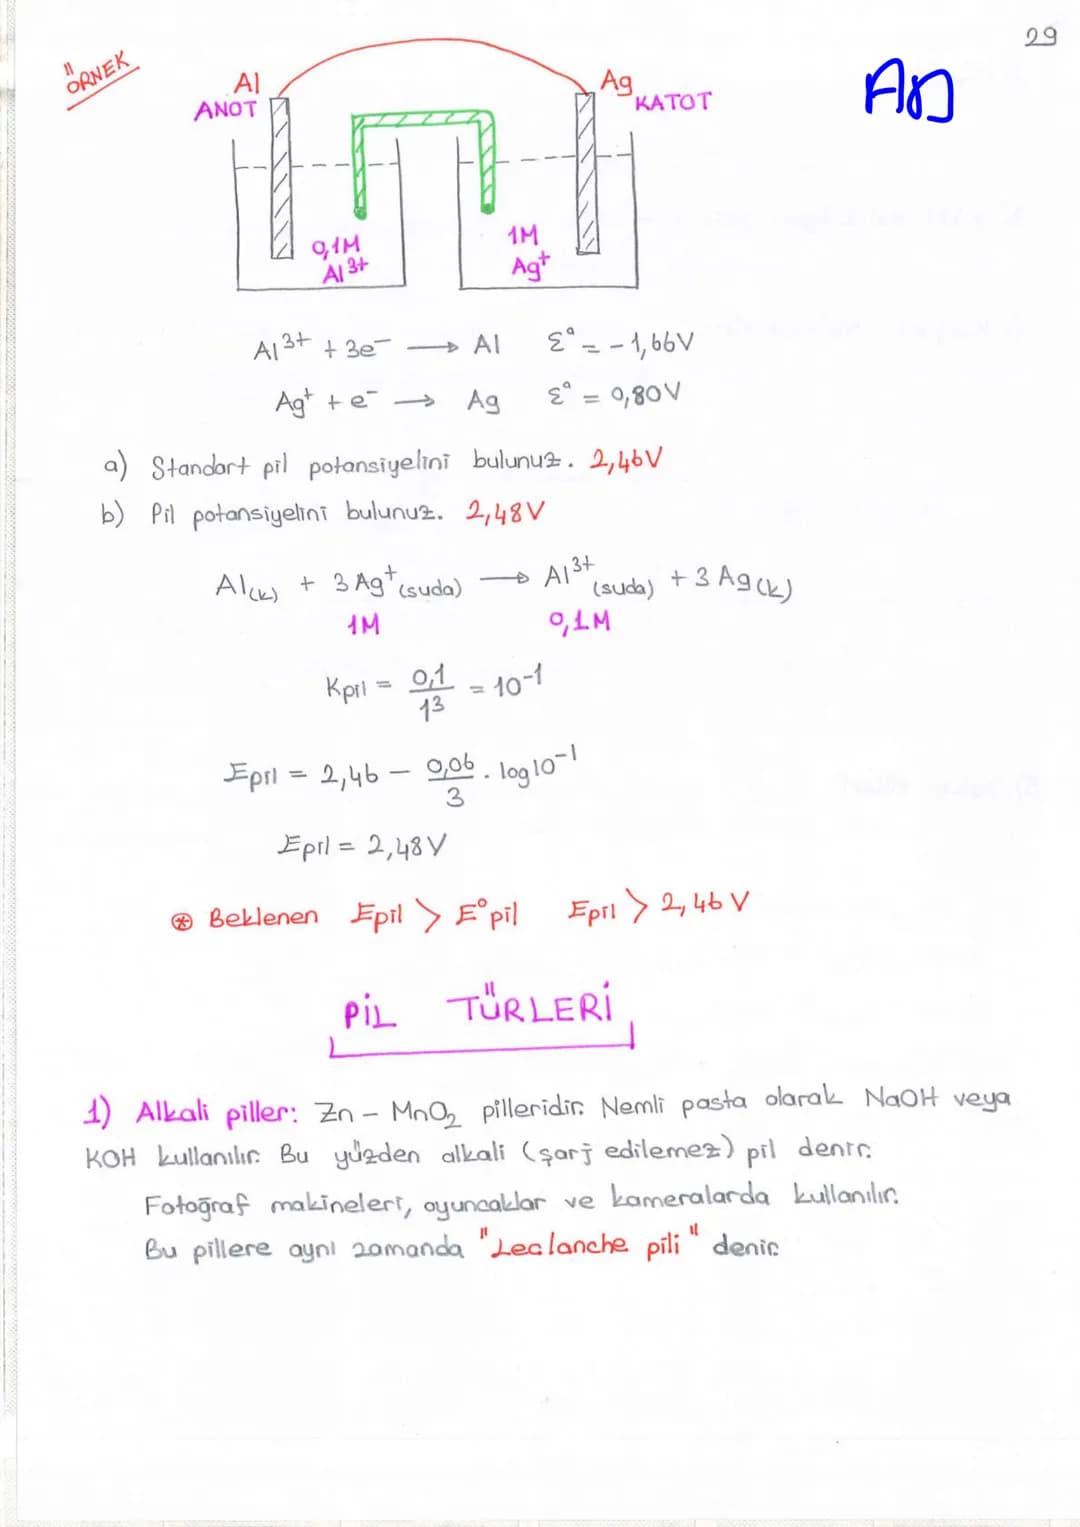 29
ÖRNEK
Al
ANOT
Ag
KATOT
0,1M
Al3+
1M
Ag+
Al3+ + 3e- → Al ε° = -1,66V
Ag+ + e- → Ag ε° = 0,80V
a) Standart pil potansiyelini bulunuz. 2,46V
b) Pil potansiyelini bulunuz. 2,48V
Al(k) + 3Ag+(suda) → Al3+(suda) + 3Ag(k)
1M 0,1M
Kpil = 0,1/1³ = 10-1
Epil = 2,46 - 0,06/3 . log10-1
Epil = 2,48V
* Beklenen Epil > E°pil Epil > 2,46 V
PİL TÜRLERİ
1) Alkali piller: Zn - MnO2 pilleridir. Nemli pasta olarak NaOH veya
KOH kullanılır. Bu yüzden alkali (şarj edilemez) pil denir.
Fotoğraf makineleri, oyuncaklar ve kameralarda kullanılır.
Bu pillere aynı zamanda "Leclanche pili" denir.